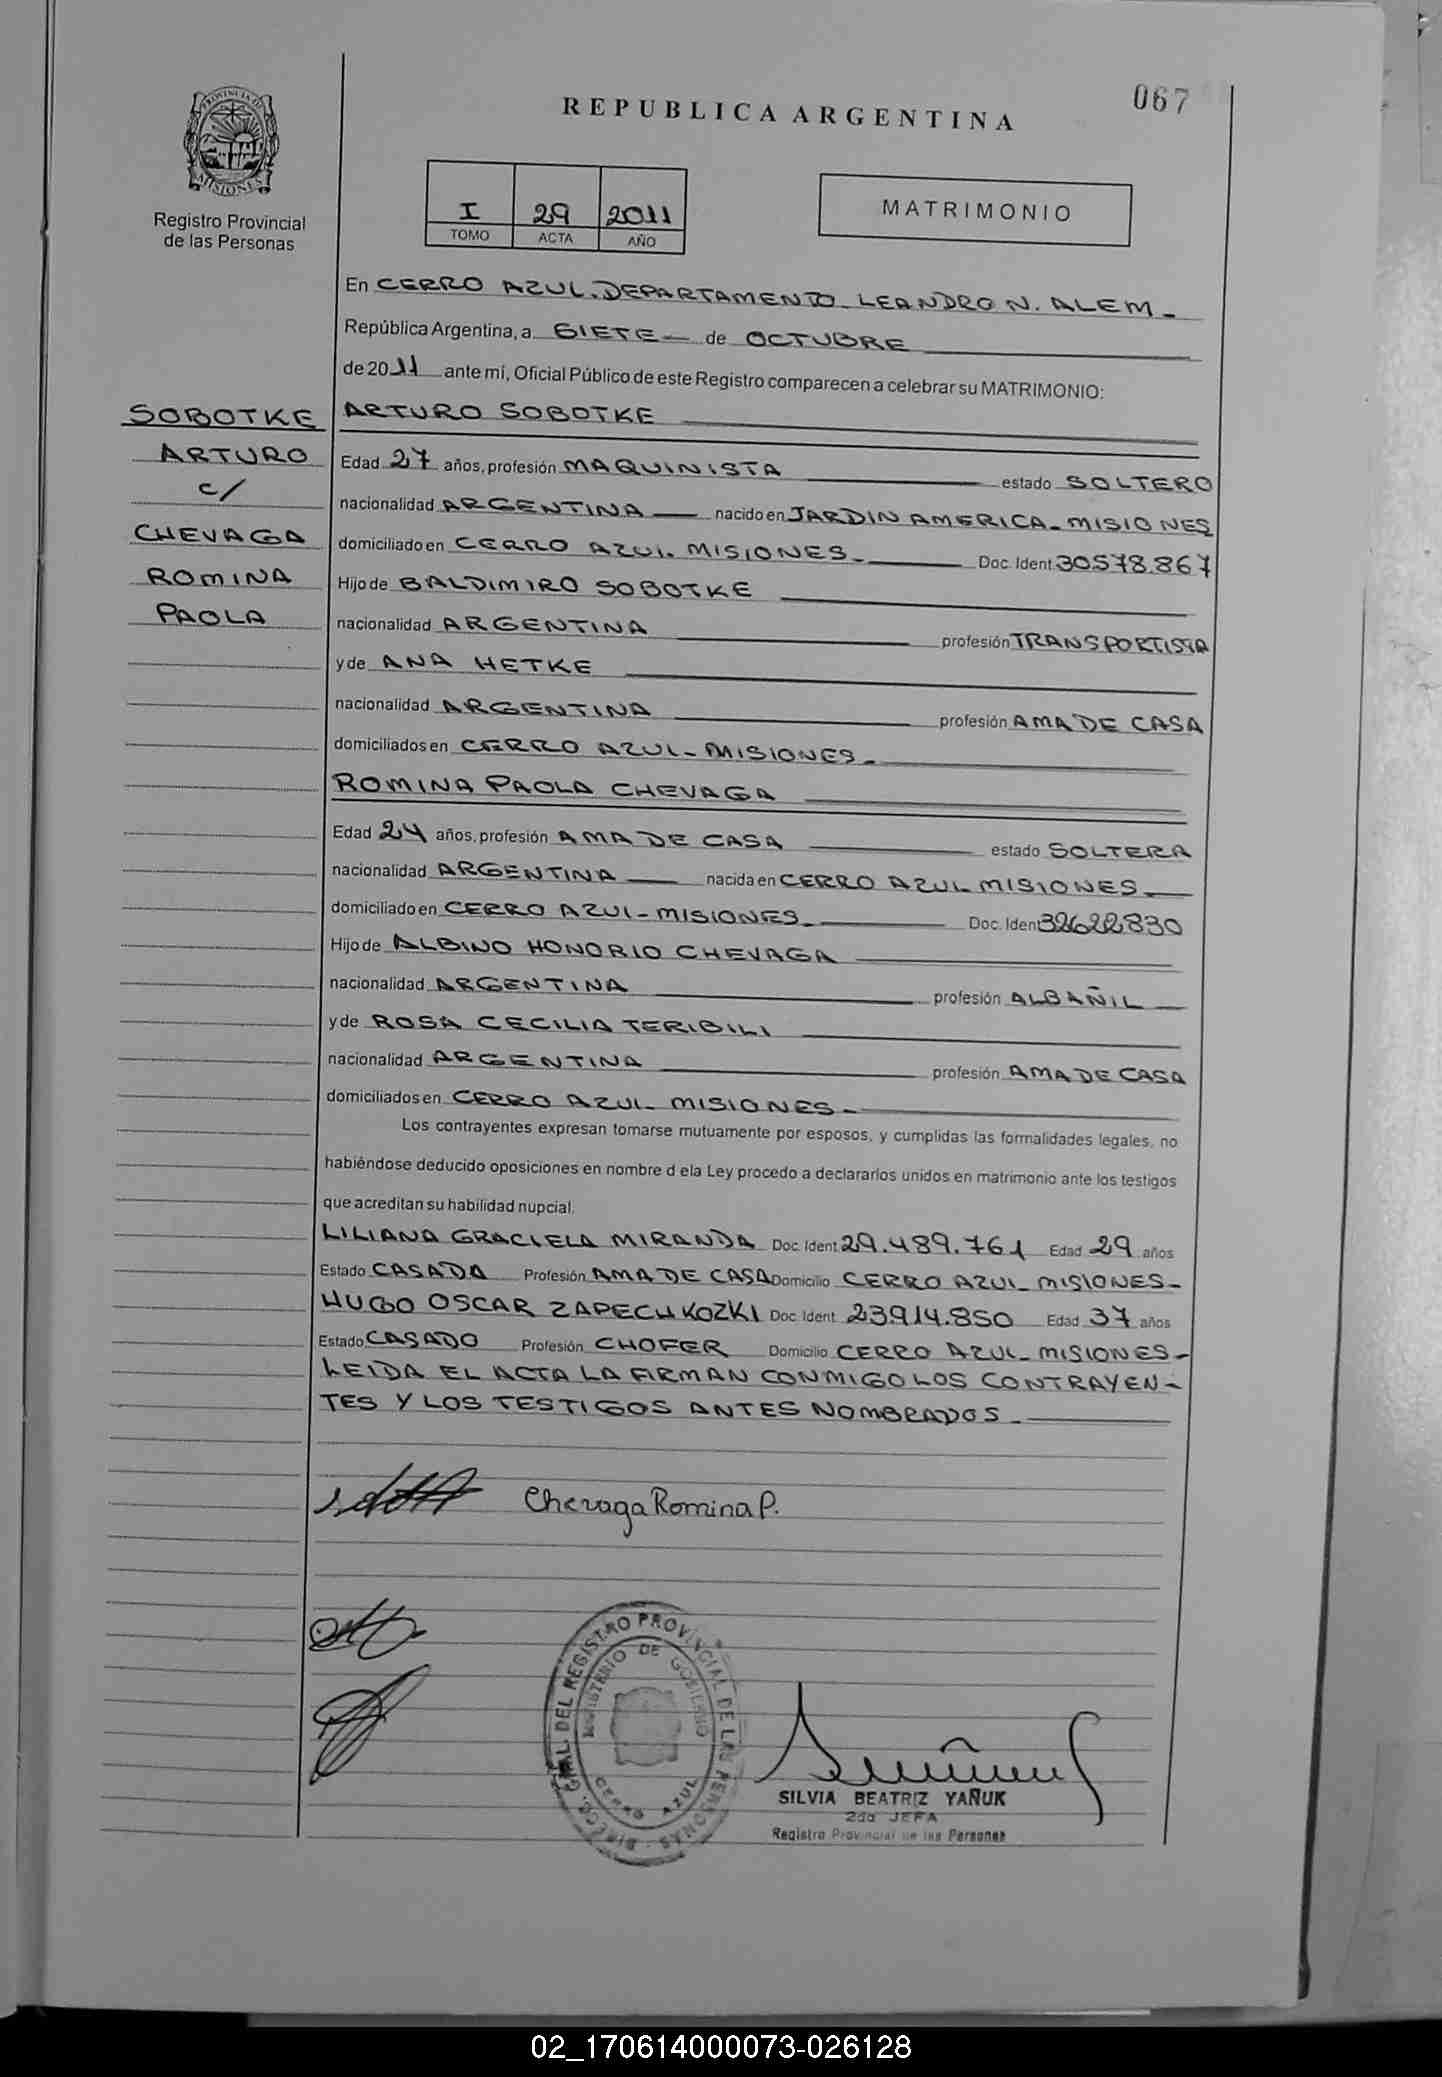 067
REPUBLICA ARGENTINA
PROVINCIA DE MISIONES
Registro Provincial
de las Personas
I 29 2011
TOMO ACTA AÑO
MATRIMONIO
En CERRO AZUL. DEPARTAMENTO LEANDRO N. ALEM -
República Argentina, a SIETE - de OCTUBRE
de 2011 ante mí, Oficial Público de este Registro comparecen a celebrar su MATRIMONIO:
SOBOTKE
ARTURO
c/
CHEVAGA
ROMINA
PAOLA
ARTURO SOBOTKE
Edad 27 años, profesión MAQUINISTA estado SOLTERO
nacionalidad ARGENTINA nacido en JARDIN AMERICA - MISIONES
domiciliado en CERRO AZUL. MISIONES - Doc. Ident. 30578.867
Hijo de BALDIMIRO SOBOTKE
nacionalidad ARGENTINA profesión TRANSPORTISTA
y de ANA HETKE
nacionalidad ARGENTINA profesión AMA DE CASA
domiciliados en CERRO AZUL - MISIONES -
ROMINA PAOLA CHEVAGA
Edad 24 años, profesión AMA DE CASA estado SOLTERA
nacionalidad ARGENTINA nacida en CERRO AZUL MISIONES -
domiciliado en CERRO AZUL - MISIONES - Doc. Iden 32622830
Hijo de ALBINO HONORIO CHEVAGA
nacionalidad ARGENTINA profesión ALBAÑIL
y de ROSA CECILIA TERIBILI
nacionalidad ARGENTINA profesión AMA DE CASA
domiciliados en CERRO AZUL - MISIONES -
Los contrayentes expresan tomarse mutuamente por esposos, y cumplidas las formalidades legales, no
habiéndose deducido oposiciones en nombre d ela Ley procedo a declararlos unidos en matrimonio ante los testigos
que acreditan su habilidad nupcial.
LILIANA GRACIELA MIRANDA Doc. Ident 29.489.761 Edad 29 años
Estado CASADA Profesión AMA DE CASA Domicilio CERRO AZUL - MISIONES -
HUGO OSCAR ZAPECHKOZKI Doc. Ident. 23914.850 Edad 37 años
Estado CASADO Profesión CHOFER Domicilio CERRO AZUL - MISIONES -
LEIDA EL ACTA LA FIRMAN CONMIGO LOS CONTRAYEN-
TES Y LOS TESTIGOS ANTES NOMBRADOS -
Chevaga Romina P.
DIREC. GRAL DEL REGISTRO PROVINCIAL DE LAS PERSONAS
MINISTERIO DE GOBIERNO
CERRO AZUL
SILVIA BEATRIZ YAÑUK
2da JEFA
Registro Provincial de las Personas
02_170614000073-026128